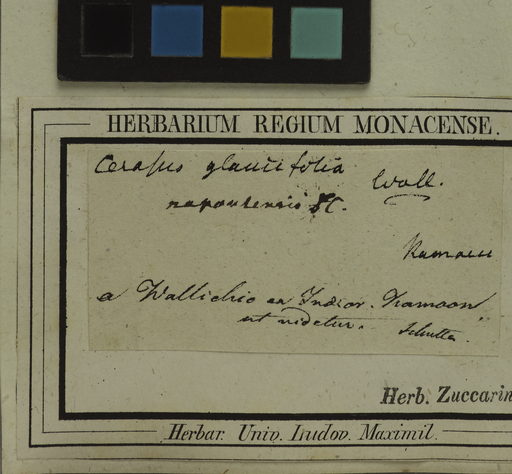 HERBARIUM REGIUM MONACENSE.
Cerasus glaucifolia Wall.
napaulensis DC.
Kamaon
a Wallichio ex Indior. Kamoon
ut videtur. Schultes
Herb. Zuccarin
Herbar. Univ. Ludov. Maximil.